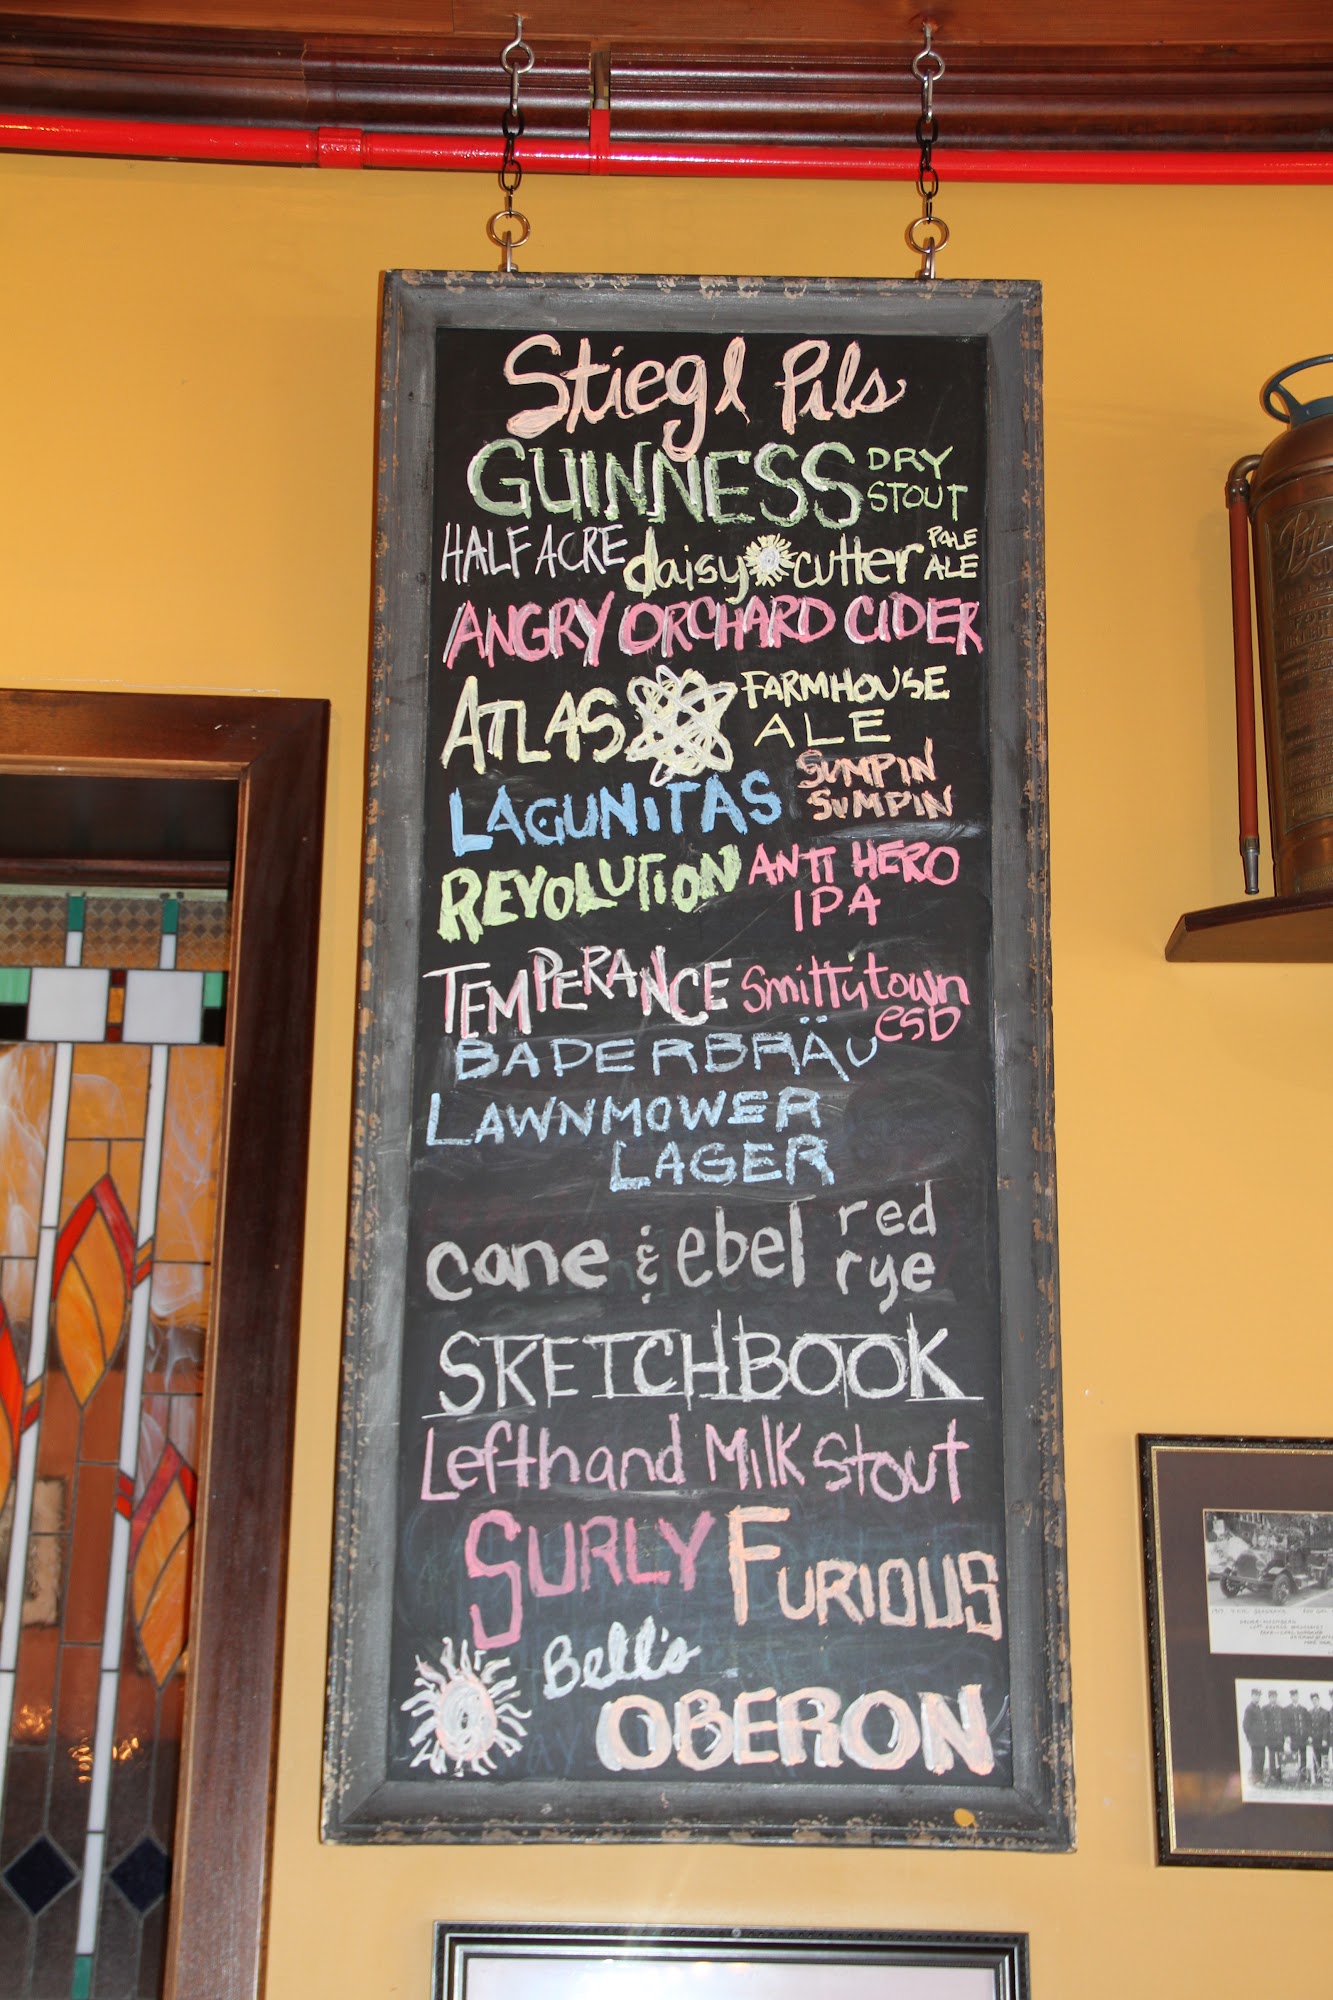 Stiegl Pils
GUINNESS DRY STOUT
HALF ACRE daisy cutter PALE ALE
ANGRY ORCHARD CIDER
ATLAS FARMHOUSE ALE
LAGUNITAS SUMPIN SUMPIN
REVOLUTION ANTI HERO IPA
TEMPERANCE Smittytown esb
BADERBRÄU
LAWNMOWER
LAGER
cane & ebel red rye
SKETCHBOOK
Lefthand Milk Stout
SURLY FURIOUS
Bell's
OBERON